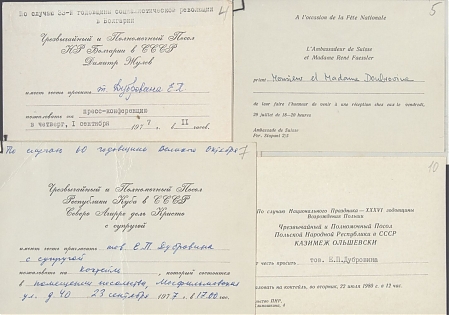 По случаю 33-й годовщины социалистической революции
в Болгарии
4
Чрезвычайный и Полномочный Посол
НР Болгарии в СССР
Димитр Жулев
имеет честь просить т. Дубровина Е.П.
пожаловать на пресс-конференцию
в четверг, 1 сентября 1977 г. в 11 часов.
5
A l'occasion de la Fête Nationale
L'Ambassadeur de Suisse
et Madame René Faessler
prient Monsieur et Madame Doubrovine
de leur faire l'honneur de venir à une réception chez eux le vendredi,
20 juillet de 18-20 heures
Ambassade de Suisse
Per. Stopani 2/5
По случаю 60 годовщины Великого Октября 7
Чрезвычайный и Полномочный Посол
Республики Куба в СССР
Северо Агирре дель Кристо
с супругой
имеют честь пригласить тов. Е.П. Дубровина
с супругой
пожаловать на коктейль, который состоится
в помещении посольства, Мосфильмовская
ул. д. 40 23 сентября 1977 г. в 17.00 час.
10
По случаю Национального Праздника — XXXVI годовщины
Возрождения Польши
Чрезвычайный и Полномочный Посол
Польской Народной Республики в СССР
КАЗИМЕЖ ОЛЬШЕВСКИ
честь просить тов. Е.П.Дубровина
на коктейль, во вторник, 22 июля 1980 г. в 12 час.
ПНР,